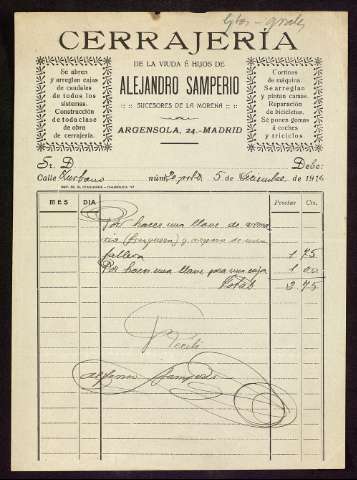 CERRAJERÍA
DE LA VIUDA É HIJOS DE
ALEJANDRO SAMPERIO
:: :: SUCESORES DE LA MORENA :: ::
ARGENSOLA, 24.-MADRID
Se abren
y arreglan cajas
de caudales
de todos los
sistemas.
Construcción
de toda clase
de obra
de cerrajería.
Cortinos
de máquina
Se arreglan
y pintan camas.
Reparación
de bicicletas.
Se ponen gomas
á coches
y triciclos.
Sr. D. Debe:
Calle Zurbano núm. 5 de Diciembre de 19
MES DIA Pesetas Cts.
Por hacer una llave de
y arreglo de una
falleva 1 75
Por hacer una llave para una caja 1 00
Total 2 75
Recibí
Samperio